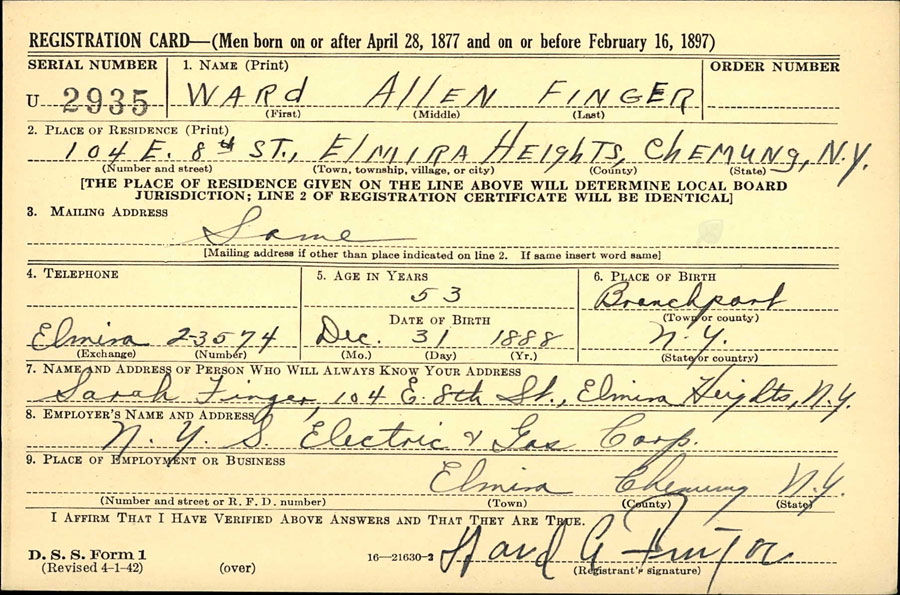 REGISTRATION CARD—(Men born on or after April 28, 1877 and on or before February 16, 1897)
SERIAL NUMBER 1. NAME (Print) ORDER NUMBER
U 2935 WARd AllEN FINGER
(First) (Middle) (Last)
2. PLACE OF RESIDENCE (Print)
104 E. 8th ST., ElMIRA HEigHTS, CHEMUNg, N.Y.
(Number and street) (Town, township, village, or city) (County) (State)
[THE PLACE OF RESIDENCE GIVEN ON THE LINE ABOVE WILL DETERMINE LOCAL BOARD
JURISDICTION; LINE 2 OF REGISTRATION CERTIFICATE WILL BE IDENTICAL]
3. MAILING ADDRESS
Same
[Mailing address if other than place indicated on line 2. If same insert word same]
4. TELEPHONE 5. AGE IN YEARS 6. PLACE OF BIRTH
53 Branchport
DATE OF BIRTH (Town or county)
Elmira 2-3574 Dec. 31 1888 N.Y.
(Exchange) (Number) (Mo.) (Day) (Yr.) (State or country)
7. NAME AND ADDRESS OF PERSON WHO WILL ALWAYS KNOW YOUR ADDRESS
Sarah Finger, 104 E. 8th St., Elmira Heights, N.Y.
8. EMPLOYER'S NAME AND ADDRESS
N. Y. S. Electric & Gas Corp.
9. PLACE OF EMPLOYMENT OR BUSINESS
Elmira Chemung N.Y.
(Number and street or R. F. D. number) (Town) (County) (State)
I AFFIRM THAT I HAVE VERIFIED ABOVE ANSWERS AND THAT THEY ARE TRUE.
D. S. S. Form 1
(Revised 4-1-42) (over) 16—21630-2 Ward A Finger
(Registrant's signature)